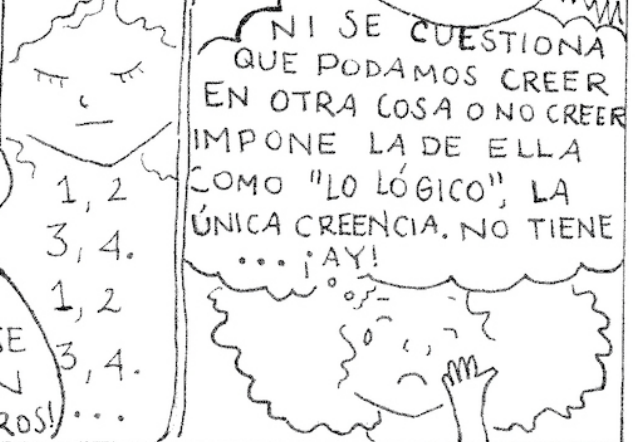 1, 2
3, 4.
1, 2
3, 4.
...
SE
N
ROS!
NI SE CUESTIONA
QUE PODAMOS CREER
EN OTRA COSA O NO CREER
IMPONE LA DE ELLA
COMO "LO LÓGICO", LA
ÚNICA CREENCIA. NO TIENE
... ¡AY!